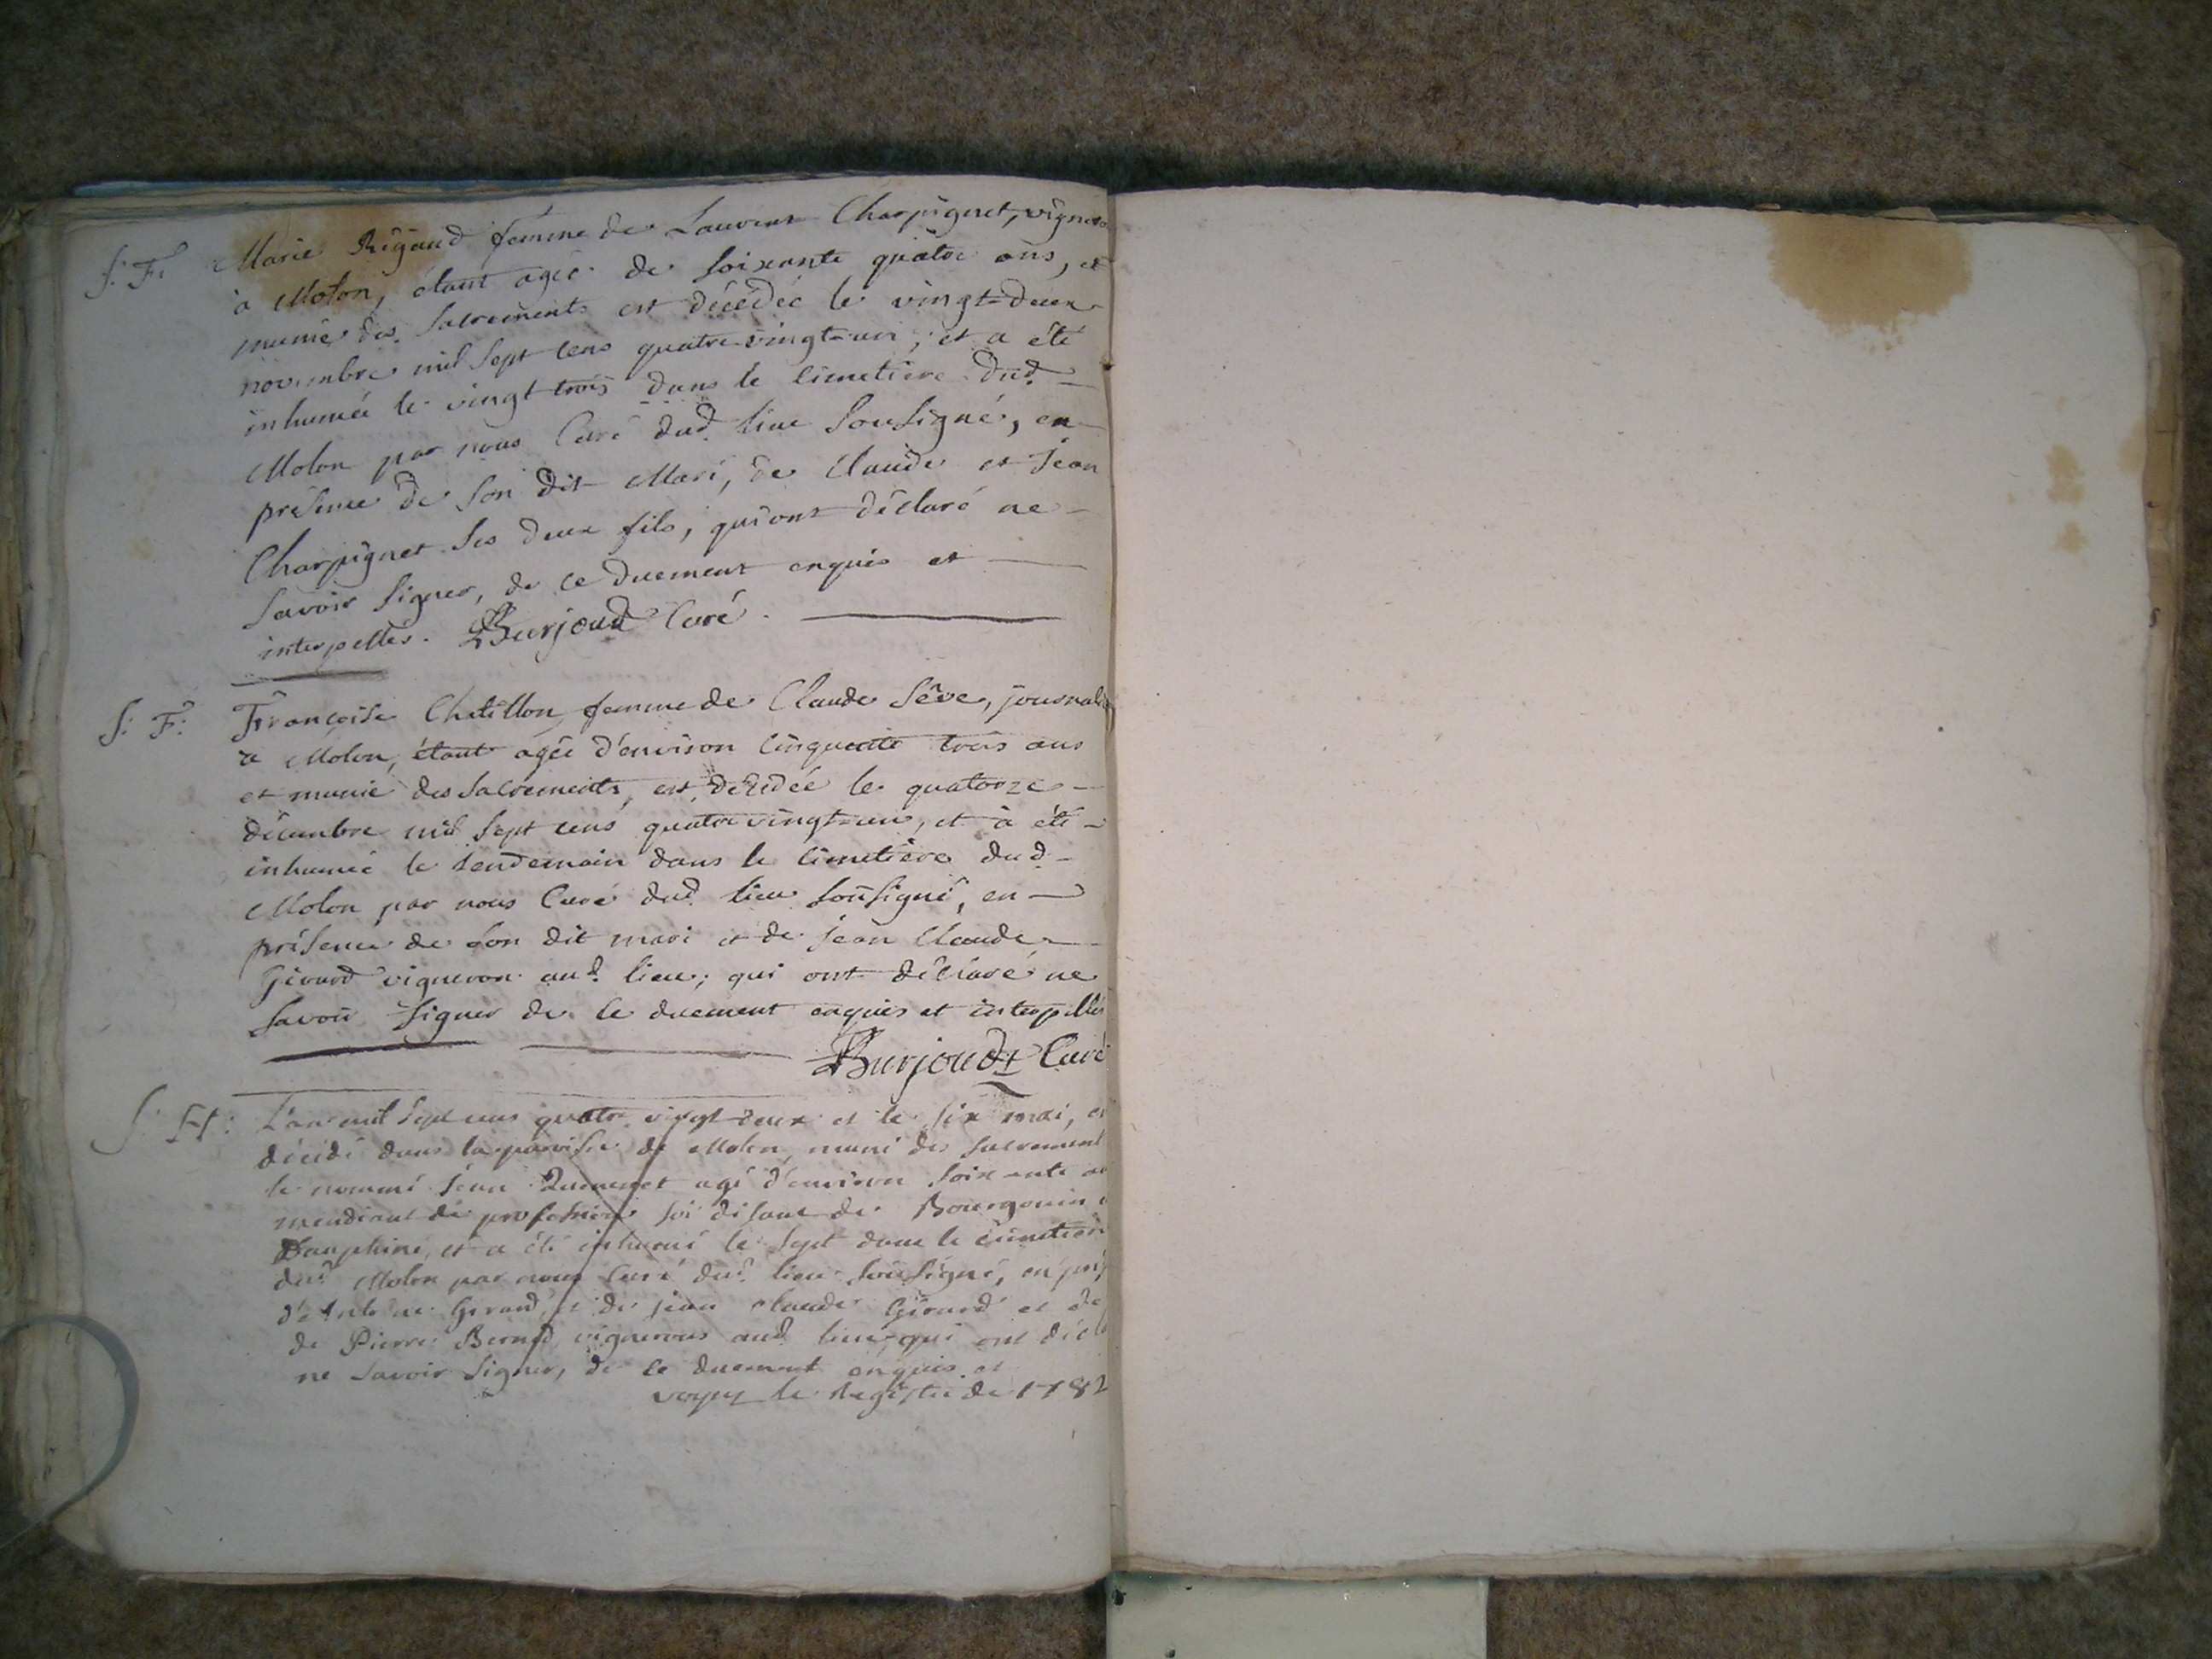 S. F. Marie Rigaud femme de Laurent Charpignet, vigneron
à Molon, étant agée de soixante quatre ans, et
munie des Sacrements est décédée le vingt-deux
novembre mil sept cens quatre vingt-un; et a été
inhumée le vingt trois dans le cimetiere dud.
Molon par nous Curé dud. lieu Sousigné, en
présence de son dit Mari, de Claude et Jean
Charpignet ses deux fils, qui ont déclaré ne
savoir signer, de ce duement enquis et
interpellés. Burjoud Curé.
S: F: Françoise Chatillon femme de Claude Sêve, journal
à Molon, étant agée d'environ cinquante trois ans
et munie des Sacrements, est décédée le quatorze
décembre mil sept cens quatre vingt-un, et à été
inhumée le lendemain dans le cimetière dud.
Molon par nous Curé dud. lieu sousigné, en
présence de son dit mari et de jean Claude
Girard vigneron aud. lieu; qui ont déclaré ne
savoir signer de ce duement enquis et interpellés
Burjoud Curé
S. H: L'an mil sept cens quatre vingt deux et le six mai, est
décédé dans la paroisse de Molon, muni des sacrement
le nommé Jean agé d'environ soixante an
mendiant de profession soi disant de Bourgouin
Dauphiné, et a été inhumé le sept dans le cimetiere
dud. Molon par nous Curé dud. lieu sousigné, en pré
d'Antoine Girard, et de jean claude Girard et de
de Pierre Bernd vignerons aud. lieu, qui ont décla
ne savoir signer, de ce duement enquis et
voyez le Registre de 1782